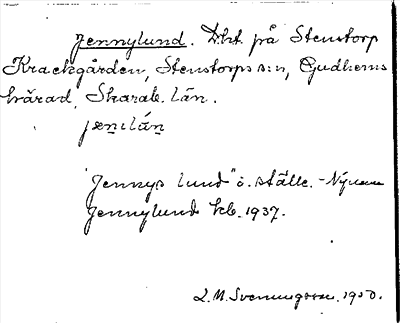 Jennylund. Dht. på Stenstorp
Krackgården, Stenstorps s:n, Gudhems
härad, Skarab. län.
jenilán
"Jennys lund" ö. ställe. - Nyare
Jennylund kb. 1937.
L. M. Svenungsson. 1950.